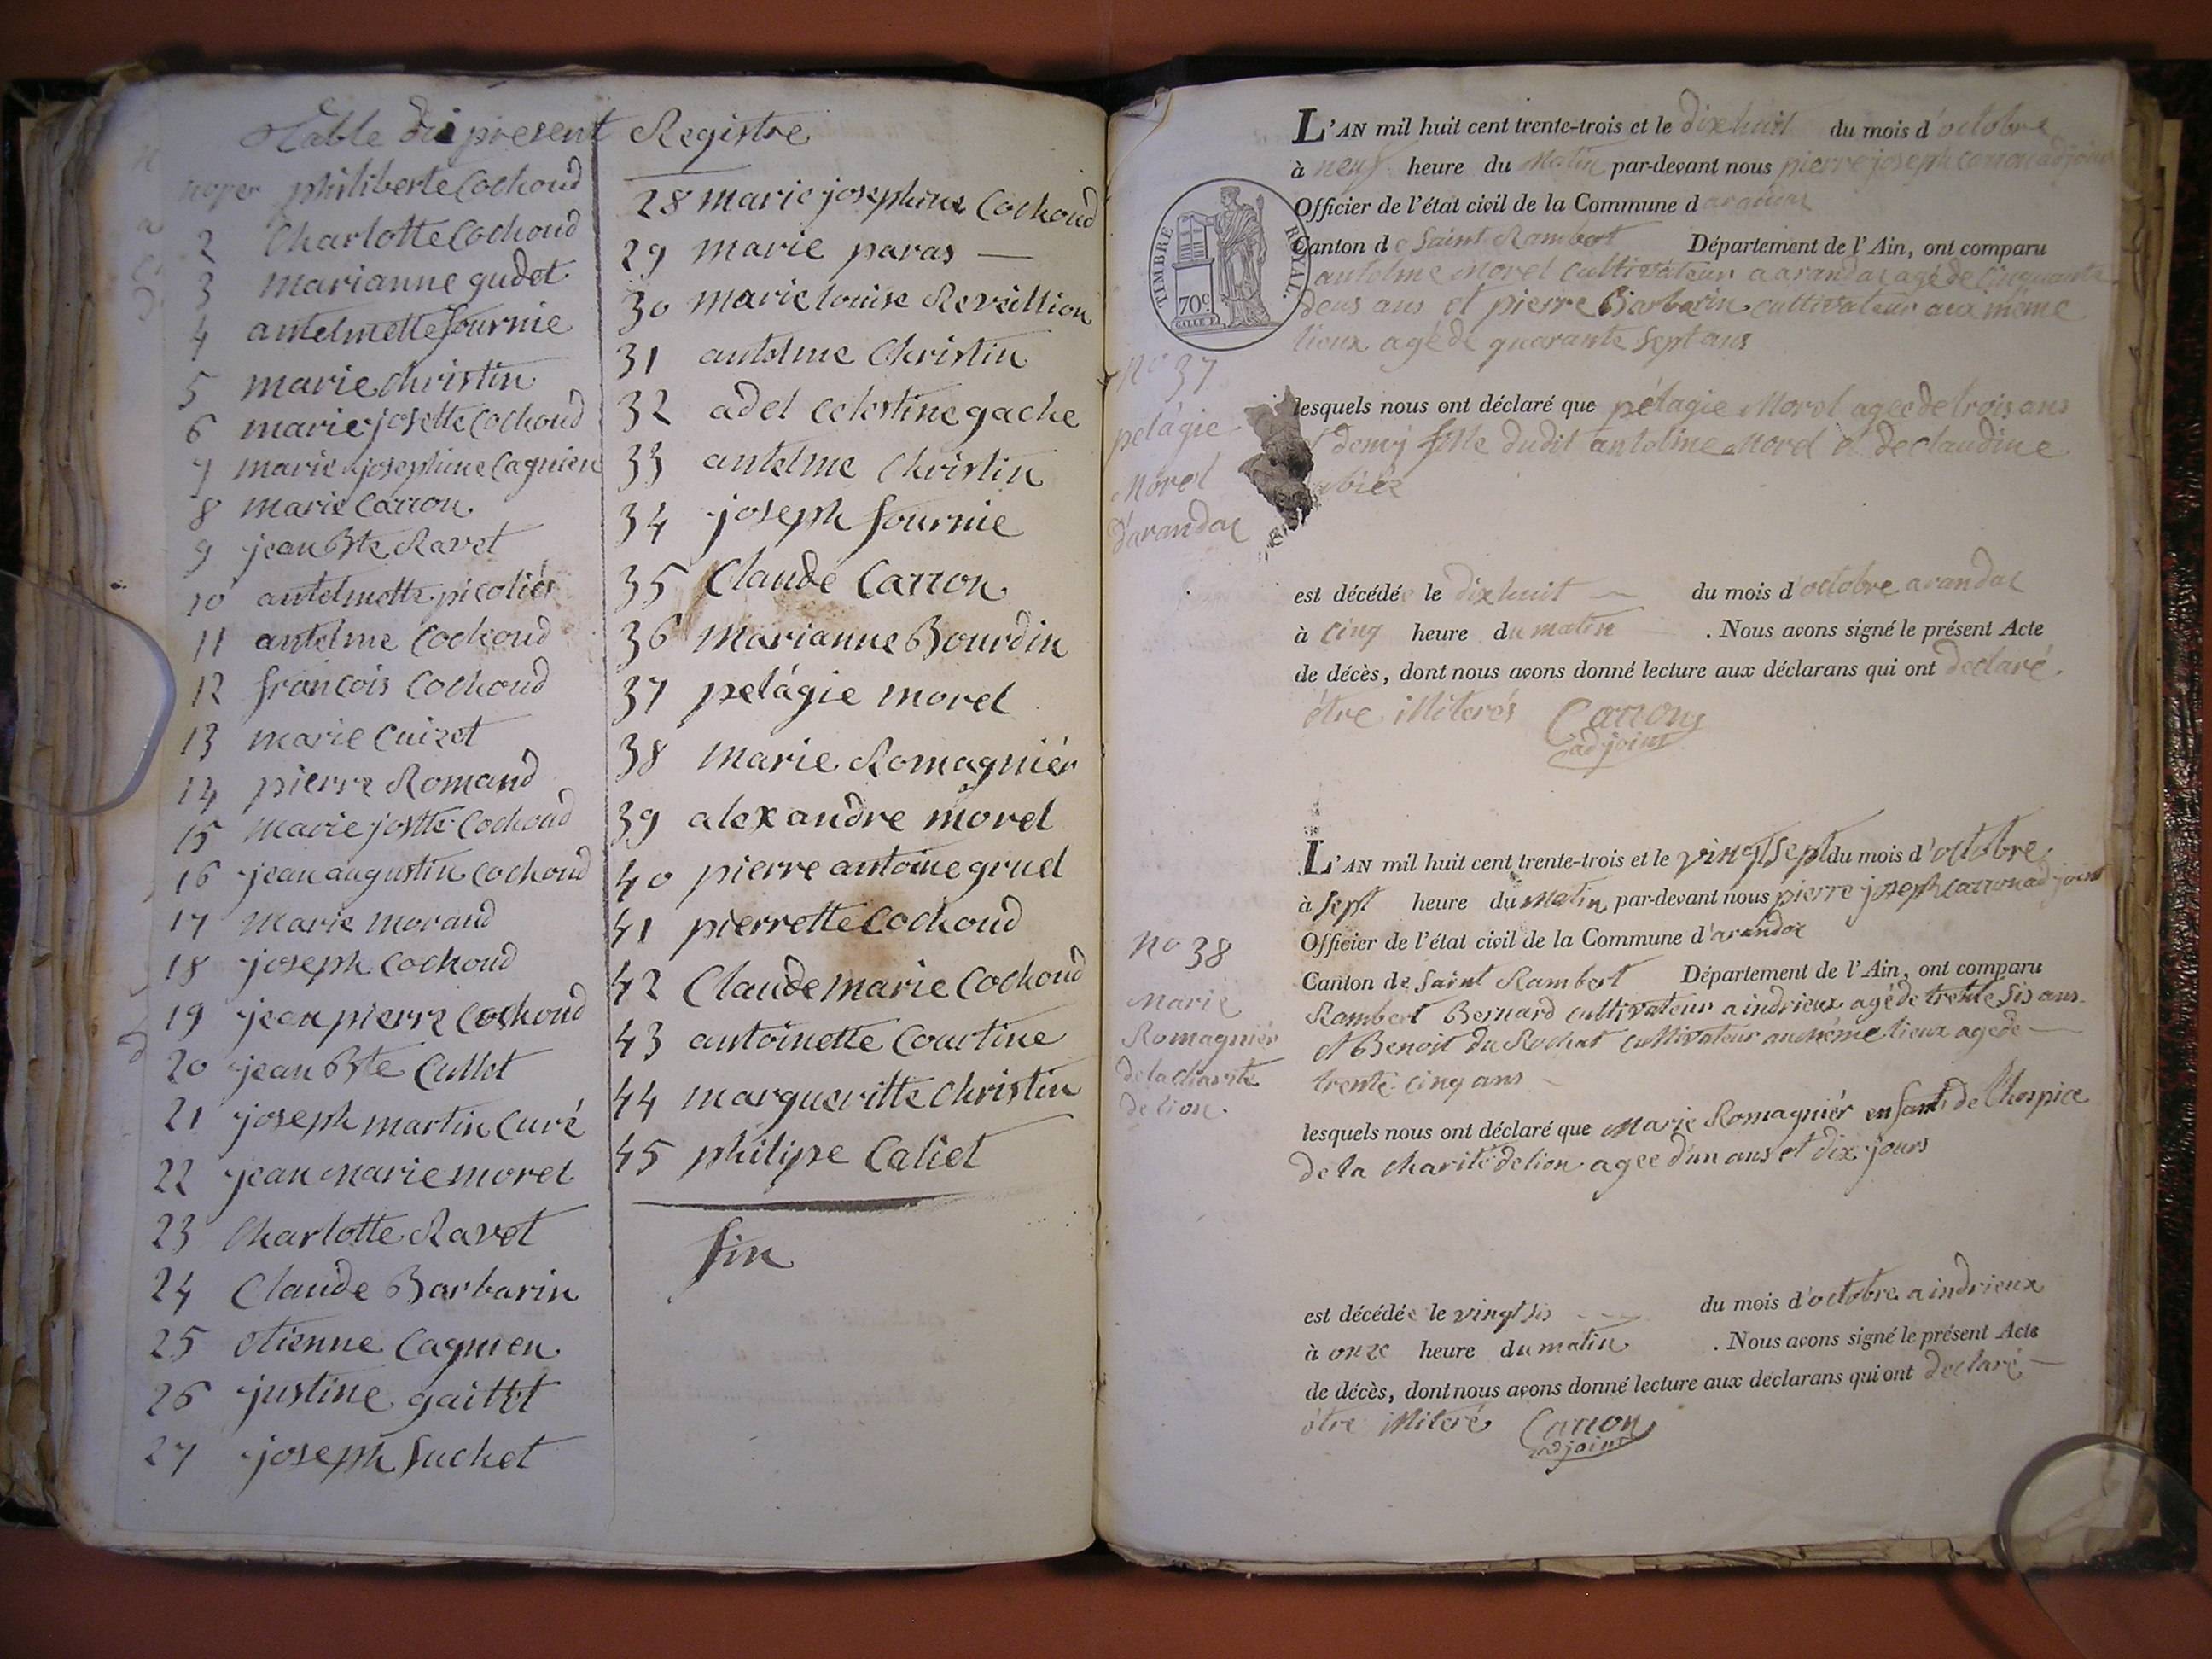 Table du present Registre
noyer philiberte Cochoud
2 Charlotte Cochoud
3 marianne gudet
4 antelmette fournie
5 marie christin
6 marie josette Cochoud
7 marie josephine Cagnien
8 marie Carron
9 jean Bte Ravet
10 antelmette picoliér
11 antelme Cochoud
12 francois Cochoud
13 marie Cuizet
14 pierre Romand
15 marie jostte Cochoud
16 jean augustin Cochoud
17 Marie morand
18 joseph Cochoud
19 jean pierre Cochoud
20 jean Bte Cullet
21 joseph martin Curé
22 jean marie morel
23 Charlotte Ravet
24 Claude Barbarin
25 etienne Cagnien
26 justine
27 joseph Suchet
28 marie josephine Cochoud
29 marie paras
30 marie louise Reveillion
31 antelme Christin
32 adel celestine gache
33 antelme Christin
34 joseph fournie
35 Claude Carron
36 Marianne Bourdin
37 pelágie morel
38 Marie Romagniér
39 alexandre morel
40 pierre antoine gruel
41 pierrette Cochoud
42 Claude marie Cochoud
43 antoinette Courtine
44 margueritte Christin
45 philipe Caliet
fin
L'AN mil huit cent trente-trois et le dixhuit du mois d'octobre
à neuf heure du Matin par-devant nous pierre joseph carron adjoint
Officier de l'état civil de la Commune d arandas
Canton de Saint Rambert Département de l'Ain, ont comparu
antelme Morel cultivateur a arandas agé de cinquante
deus ans et pierre Barbarin cultivateur aux même
lieux agé de quarante sept ans
TIMBRE ROYAL.
70c
N° 37
pelágie
Morel
d'arandas
lesquels nous ont déclaré que pélagie Morel agee de trois ans
demy fille dudit antelme Morel et de claudine
est décédée le dixhuit du mois d'octobre arandas
à cinq heure du matin . Nous avons signé le présent Acte
de décès, dont nous avons donné lecture aux déclarans qui ont declaré
étre illiterés Carron
adjoint
L'AN mil huit cent trente-trois et le vingtsept du mois d'octobre
à sept heure du Matin par-devant nous pierre joseph carron adjoint
Officier de l'état civil de la Commune d'arandas
Canton de Saint Rambert Département de l'Ain, ont comparu
Rambert Bernard cultivateur a indrieux agé de trente sis ans
et Benoit du Rochat cultivateur au même lieux agé de
trente cinq ans
N° 38
Marie
Romagniér
de la charité
de lion
lesquels nous ont déclaré que Marie Romagniér enfant de l'hospice
de la charité de lion agee d'un ans et dix jours
est décédée le vingt sis du mois d'octobre a indrieux
à onze heure du matin . Nous avons signé le présent Acte
de décès, dont nous avons donné lecture aux déclarans qui ont declaré
étre illiteré Carron
adjoint